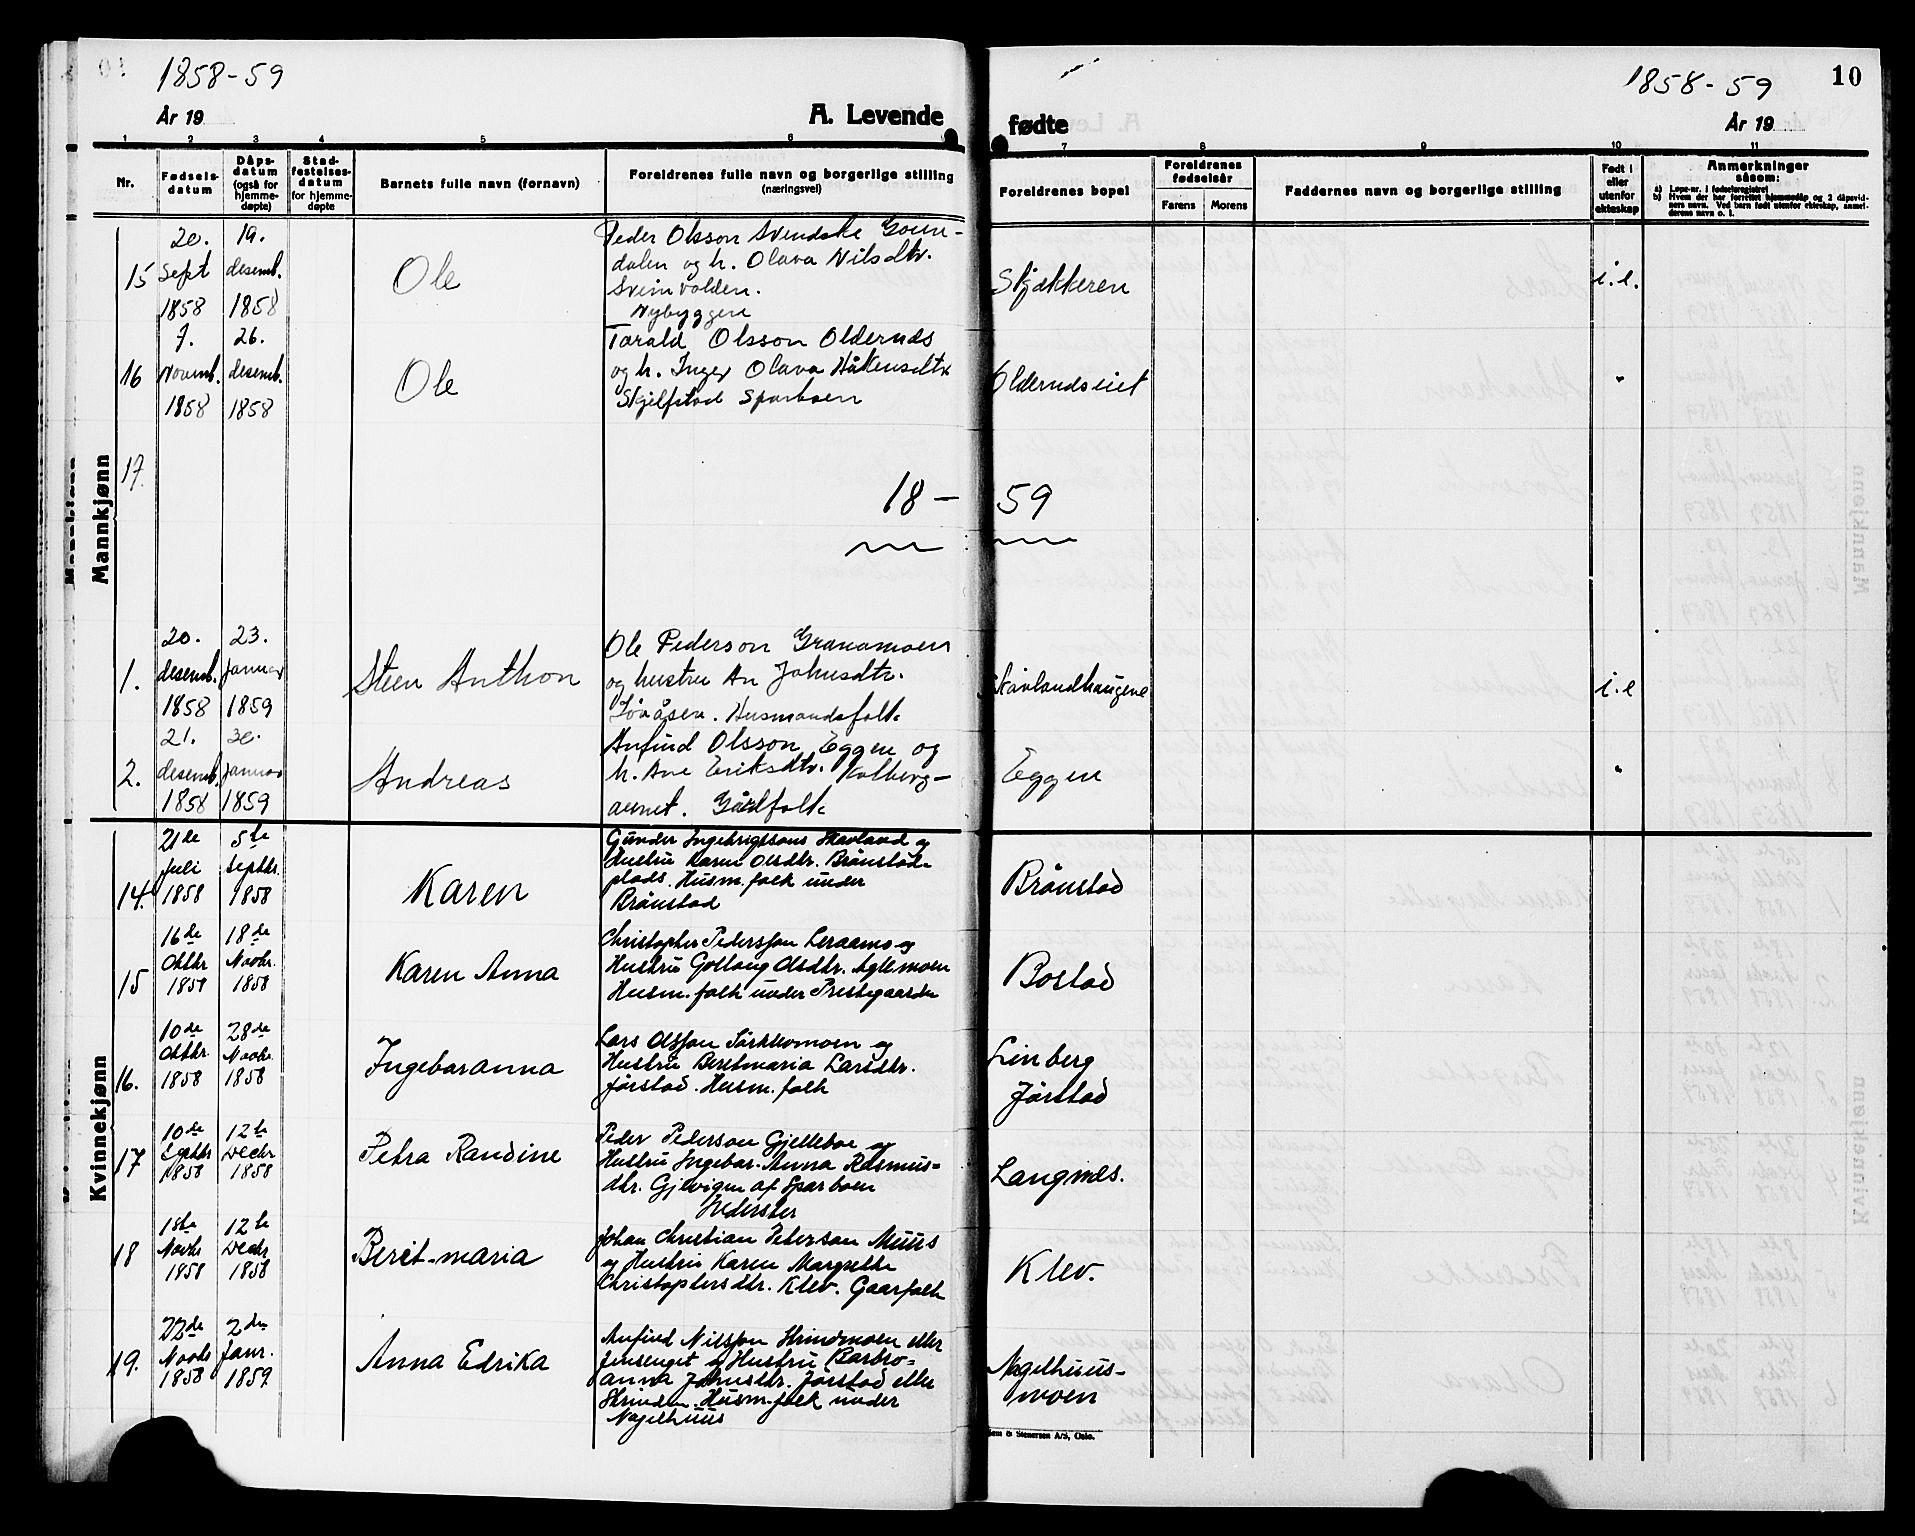 1858-59
År 19
A. Levende
fødte
1858-59
10
År 19
1 2 3 4 5 6 7 8 9 10 11
Nr.
Fødsels-
datum
Dåps-
datum
(også for
hjemme-
døpte)
Stad-
festelses-
datum
for hjemme-
døpte
Barnets fulle navn (fornavn)
Foreldrenes fulle navn og borgerlige stilling
(næringsvei)
Foreldrenes bopel
Foreldrenes
fødselsår
Farens Morens
Faddernes navn og borgerlige stilling
Født i
eller
utenfor
ekteskap
Anmerkninger
såsom:
a) Løpe-nr. i fødselsregistret
b) Hvem der har forrettet hjemmedåp og 2 dåpsvid-
ners navn. Ved barn født utenfor ekteskap, anmel-
derens navn o. l.
Mannkjønn
15
20. Sept 1858
19. desemb. 1858
Ole
Peder Olsson Svendske Goun-
dalen og h. Olava Nilsdtr.
Sveinvolden.
Nybyggere
Skjækkeren
i.e.
16
7. Novemb. 1858
26. desemb. 1858
Ole
Tarald Olsson Olderuds
og h. Inger Olava Håkensdtr
Skjelfstad Sparboen
Olderudseiet
"
17.
18 - 59
1.
20. desemb. 1858
23. Januar 1859
Steen Anthon
Ole Pederson Granamoen
og hustru An Johnsdtr.
Løvåsen. Husmandsfolk
Skavlandhaugene
i.e
2.
21. desemb. 1858
30. Januar 1859
Andreas
Anfind Olsson Eggen og
h. Ane Eriksdtr. Kolberg-
aunet. Gårdfolk
Eggen
"
Kvinnekjønn
14.
21de Juli 1858
5te Septbr. 1858
Karen
Gunder Ingebrigtsons Skavland og
Hustru Karen Olsdtr. Brönstad-
plads. Husm.folk under
Brönstad
Brönstad
15
16de Oktbr 1858
18de Novbr. 1858
Karen Anna
Christopher Pedersson Leraamo og
Hustru Gollaug Olsdtr. Aglemoen
Husm.folk under Prestegaarden
Bostad
16.
10de Oktbr. 1858
28de Novbr. 1858
Ingebaranna
Lars Olsson Sørkkomoen og
Hustru Beretmaria Larsdtr.
Jørstad. Husm.folk
Linberg
Jørstad
17
10de Septbr 1858
12te Decbr 1858
Petra Randine
Peder Pederson Gjelleboe og
Hustru Ingebar-Anna Rasmus-
dtr. Gjevigen af Sparboen
Inderster
Langnæs.
18
1ste Novbr 1858
12te Decbr 1858
Berit-maria
Johan Christian Peterson Muus
og Hustru Karen Margrethe
Christophersdtr. Klev. Gaarfolk
Klev.
19.
22de Novbr 1858
2den Janr. 1859
Anna Edrika
Anfind Nilsson Skrindmoen eller
Jenseget og Hustru Barbro-
anna Johnsdtr. Jørstad eller
Skrinden. Husm.folk under
Nagelhuus
Nagelhuus-
moen
Sem & Stenersen A/S, Oslo.